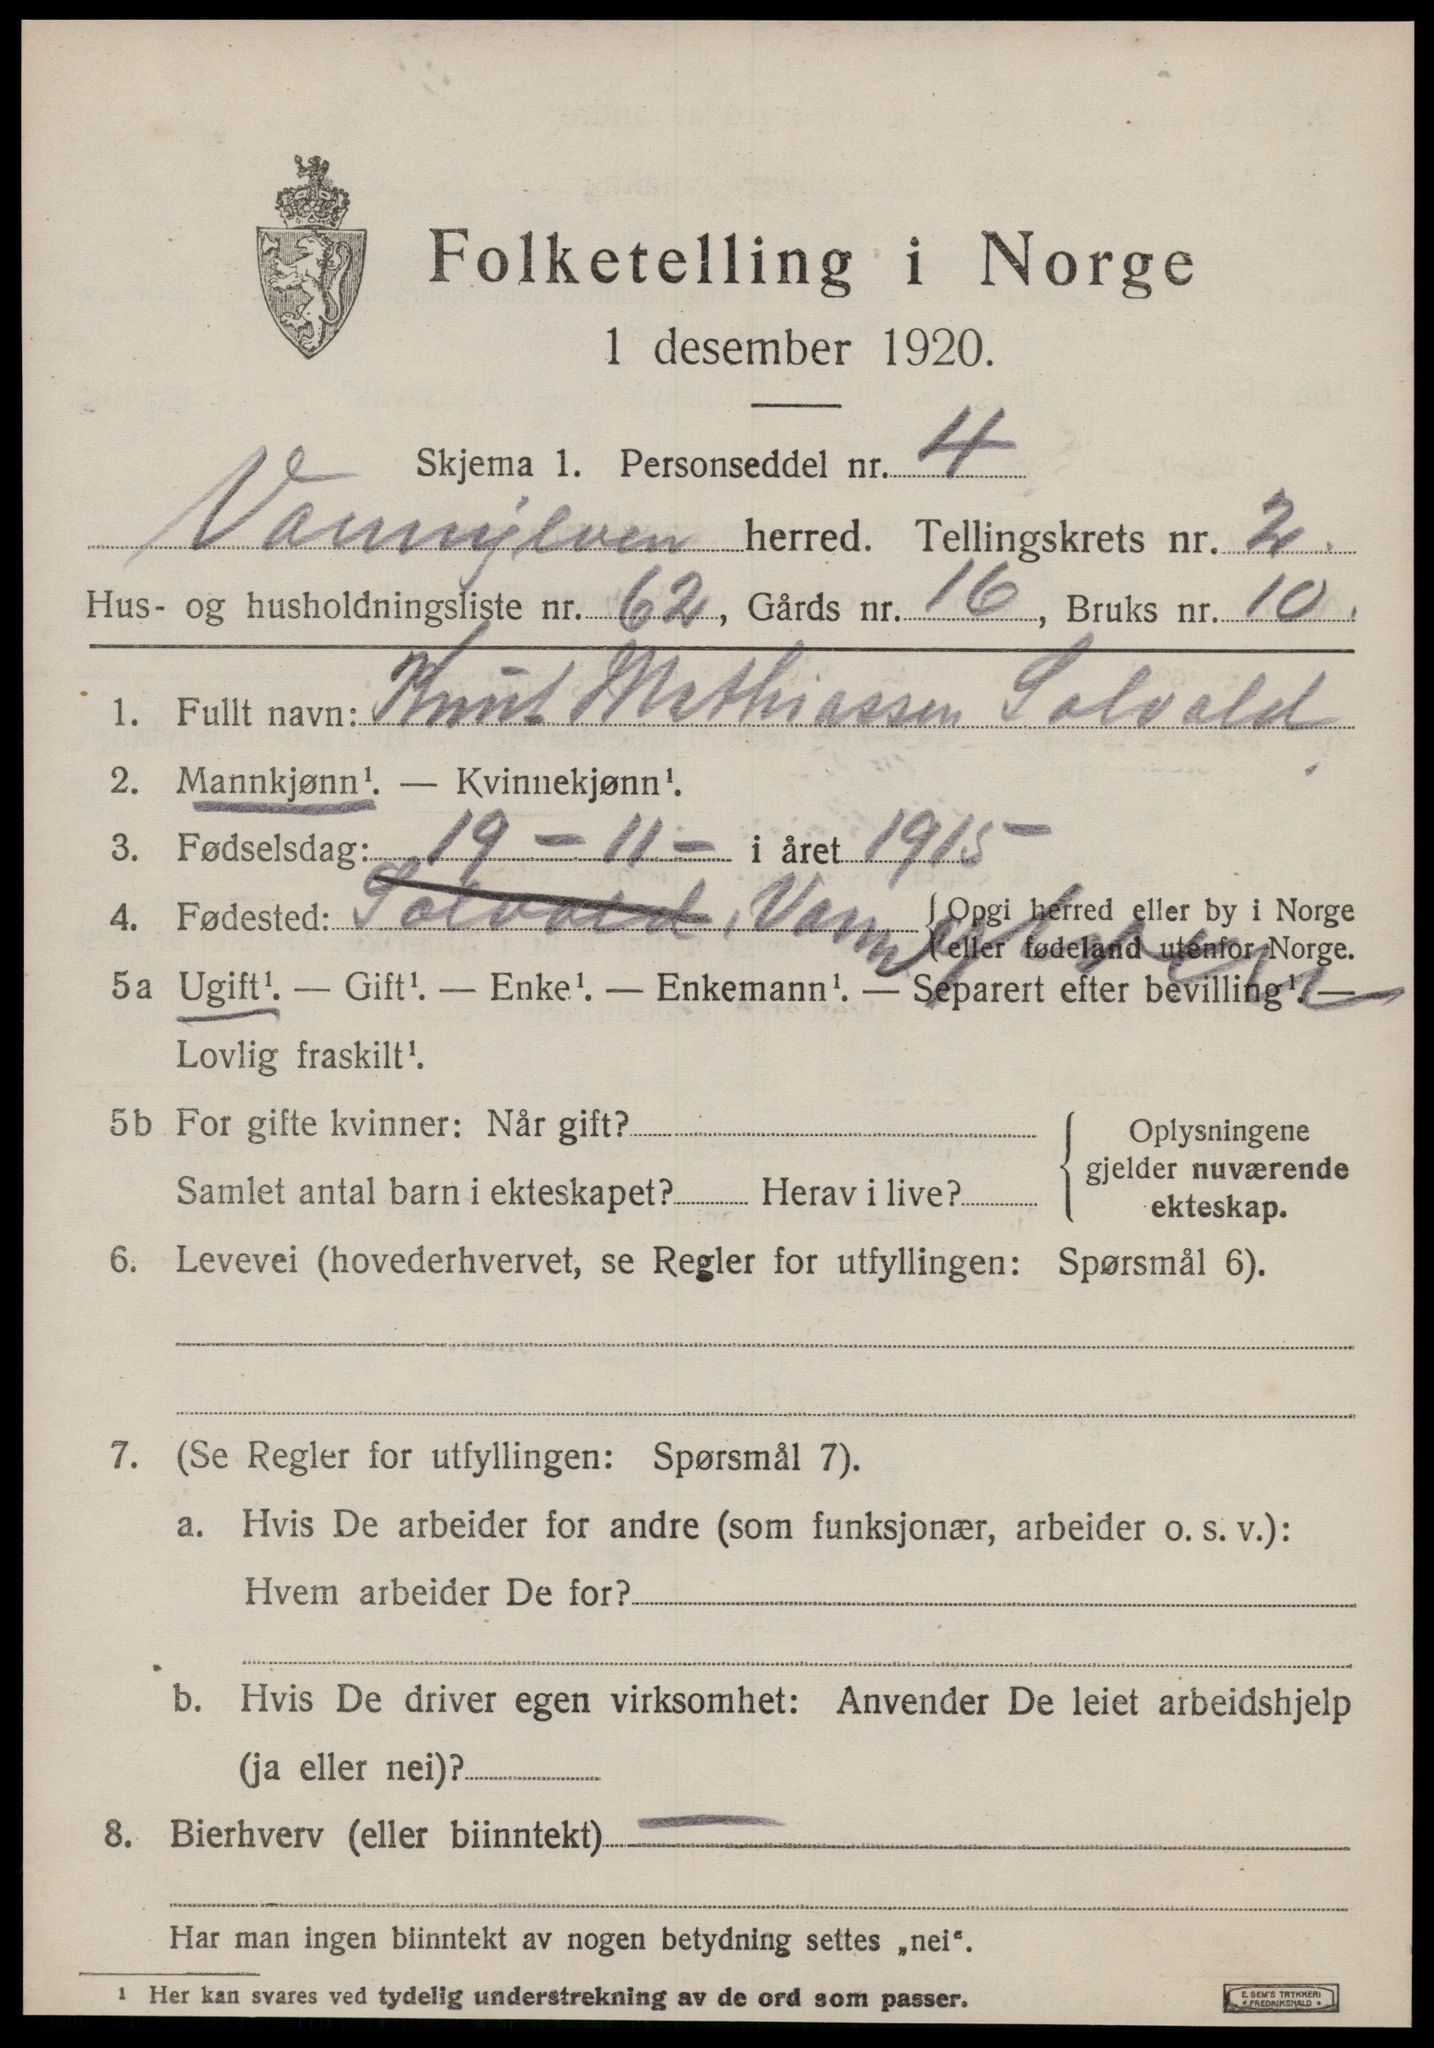 Folketelling i Norge
1 desember 1920.
Skjema 1. Personseddel nr. 4
Vannylven herred. Tellingskrets nr. 2.
Hus- og husholdningsliste nr. 62, Gårds nr. 16, Bruks nr. 10.
1. Fullt navn: Knut Mathiassen Solvold
2. Mannkjønn¹. — Kvinnekjønn¹.
3. Fødselsdag: 19 – 11 – i året 1915 –
4. Fødested: Solvold, Vannylven {Opgi herred eller by i Norge
eller fødeland utenfor Norge.
5a Ugift¹. — Gift¹. — Enke¹. — Enkemann¹. — Separert efter bevilling¹. —
Lovlig fraskilt¹.
5b For gifte kvinner: Når gift?
Samlet antal barn i ekteskapet? Herav i live?
{ Oplysningene
gjelder nuværende
ekteskap.
6. Levevei (hovederhvervet, se Regler for utfyllingen: Spørsmål 6).
7. (Se Regler for utfyllingen: Spørsmål 7).
a. Hvis De arbeider for andre (som funksjonær, arbeider o. s. v.):
Hvem arbeider De for?
b. Hvis De driver egen virksomhet: Anvender De leiet arbeidshjelp
(ja eller nei)?
8. Bierhverv (eller biinntekt) —
Har man ingen biinntekt av nogen betydning settes „nei“.
¹ Her kan svares ved tydelig understrekning av de ord som passer.
E. SEM'S TRYKKERI
FREDRIKSHALD